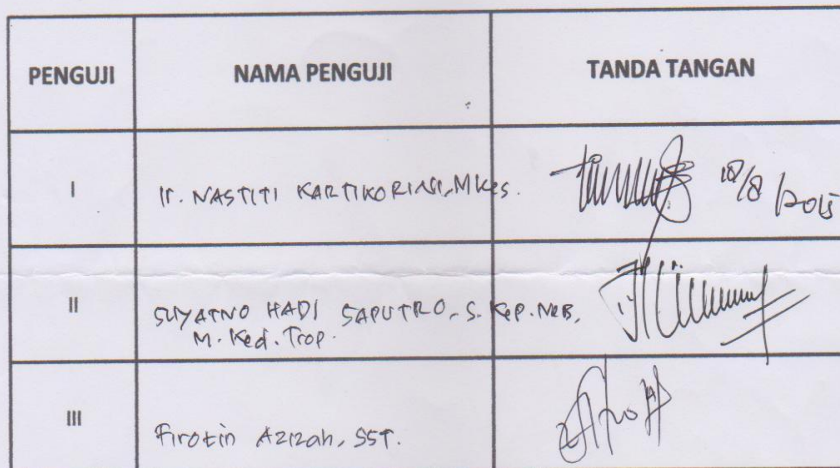 PENGUJI NAMA PENGUJI TANDA TANGAN
I Ir. NASTITI KARTIKORINI, MKes. 18/8/2015
II SUYATNO HADI SAPUTRO, S. Kep. Ners,
M. Ked. Trop.
III Firotin Azizah, SST.